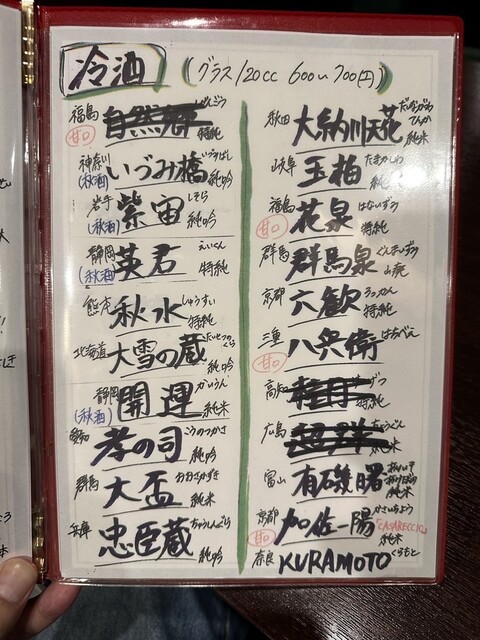 冷酒 (グラス120cc 600〜700円)
福島 自然郷 しぜんごう 特純
甘口
神奈川 いづみ橋 いづみばし 純吟
(秋酒)
岩手 紫宙 しそら 純吟
(秋酒)
静岡 英君 えいくん 特純
(秋酒)
熊本 秋水 しゅうすい 特純
北海道 大雪の蔵 たいせつのくら 純吟
静岡 開運 かいうん 純米
(秋酒)
愛知 孝の司 こうのつかさ 純吟
群馬 大盃 おおさかずき 純米
兵庫 忠臣蔵 ちゅうしんぐら 純吟
秋田 大納川天花 だいながわ てんか 純米
岐阜 玉柏 たまかしわ 純
福島 花泉 はないずみ 特純
甘口
群馬 群馬泉 ぐんまいずみ 山廃
京都 六歓 ろっかん 特純
三重 八兵衛 はちべえ
甘口
高知 特純
広島 超群 ちょうぐん 純米
富山 有磯曙 純米
京都 加佐一陽 かさいちよう 「CASARECCIO」 純米
甘口
奈良 KURAMOTO くらもと